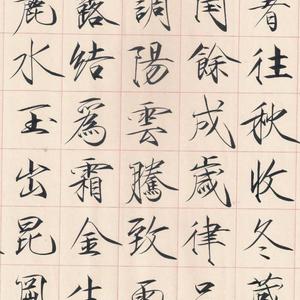 暑往秋收冬藏
閏餘成歲律呂
調陽雲騰致雨
露結爲霜金生
麗水玉出昆岡